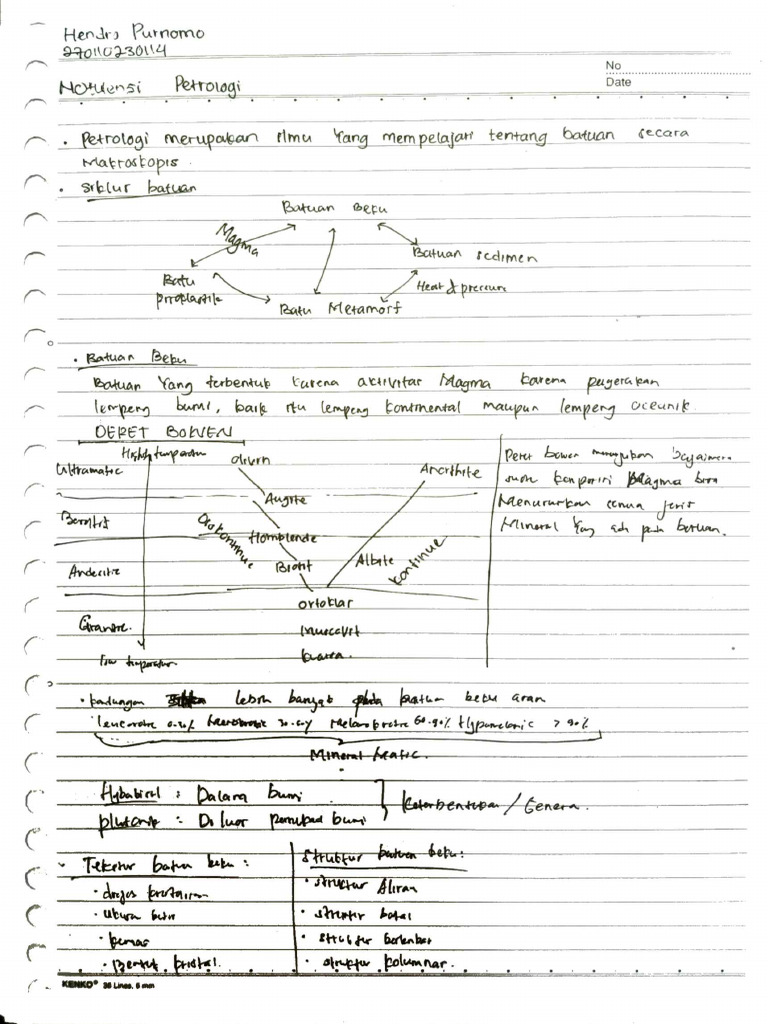 Hendro Purnomo
270110230114
No
Date
Petrologi
• Petrologi merupakan ilmu yang mempelajari tentang batuan secara
Makroskopis.
• Siklus batuan
Batuan Beku
Magma
Batuan sedimen
Batu
piroplastik
Heat & pressure
Batu Metamorf
• Batuan Beku
Batuan yang terbentuk karena aktivitas Magma karena pergerakan
lempeng bumi, baik itu lempeng kontinental maupun lempeng oceanik
DERET BOWEN
High temperatur
Ultramafic
Olivin
Anorthite
Augite
Basaltis
Diskontinue
Hornblende
Biotit
Albite
Kontinue
Andesitic
ortoklas
Granitic
muscovit
kuarsa.
low temperatur
Deret bowen menunjukan bagaimana
suatu komposisi Magma bisa
Menurunkan semua jenis
Mineral yang ada pada batuan.
• kandungan lebih banyak pada batuan beku asam
leucocratic 0-30% Mesocratic 30-60% Melanocratic 60-90% Hypomelanic > 90%
Mineral Mafic.
Hybabisal : Dalam bumi
plutonik : Di luar permukaan bumi
Keterbentukan / Genesa.
Tekstur batuan beku :
• derajas kristalisasi
• Ukuran butir
• kemas
• Bentuk kristal.
Struktur batuan beku :
• struktur Aliran
• struktur bantal
• struktur berlembar
• struktur kolumnar.
KENKO® 36 Lines, 6 mm